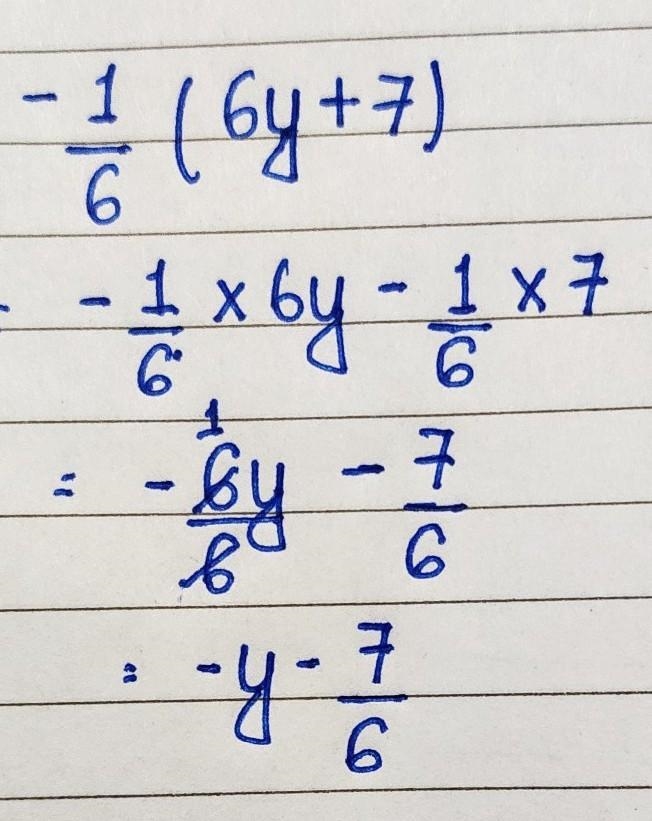 -1/6 (6y+7)
- -1/6 × 6y - 1/6 × 7
= -6y/6 1 - 7/6
= -y - 7/6